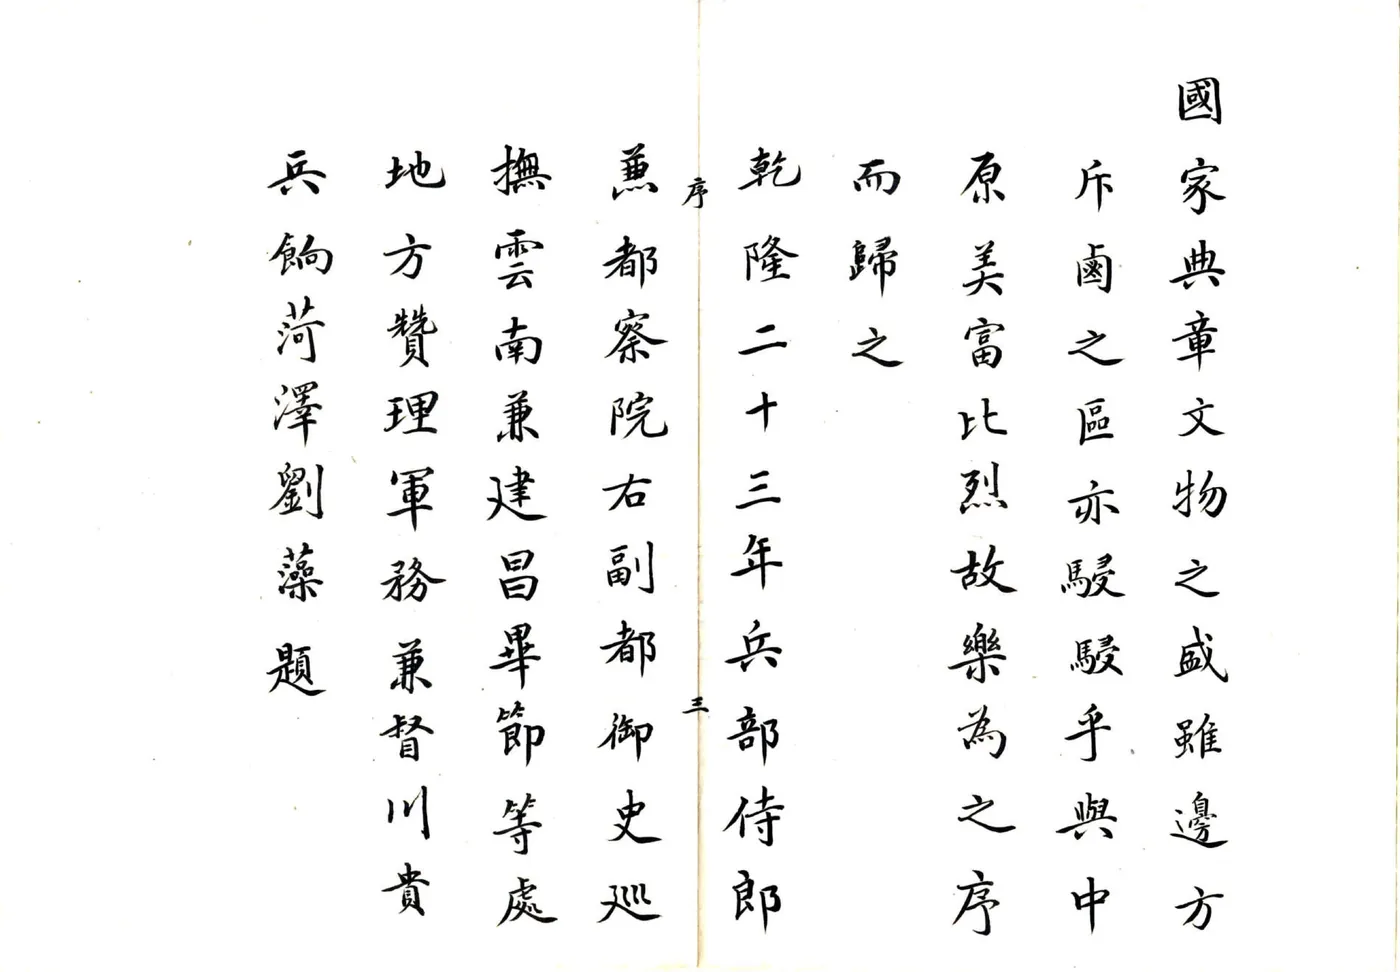 國家典章文物之盛雖邊方
斥鹵之區亦駸駸乎與中
原美富比烈故樂為之序
而歸之
乾隆二十三年兵部侍郎
序 三
蕪都察院右副都御史巡
撫雲南兼建昌畢節等處
地方贊理軍務兼督川貴
兵餉菏澤劉藻題